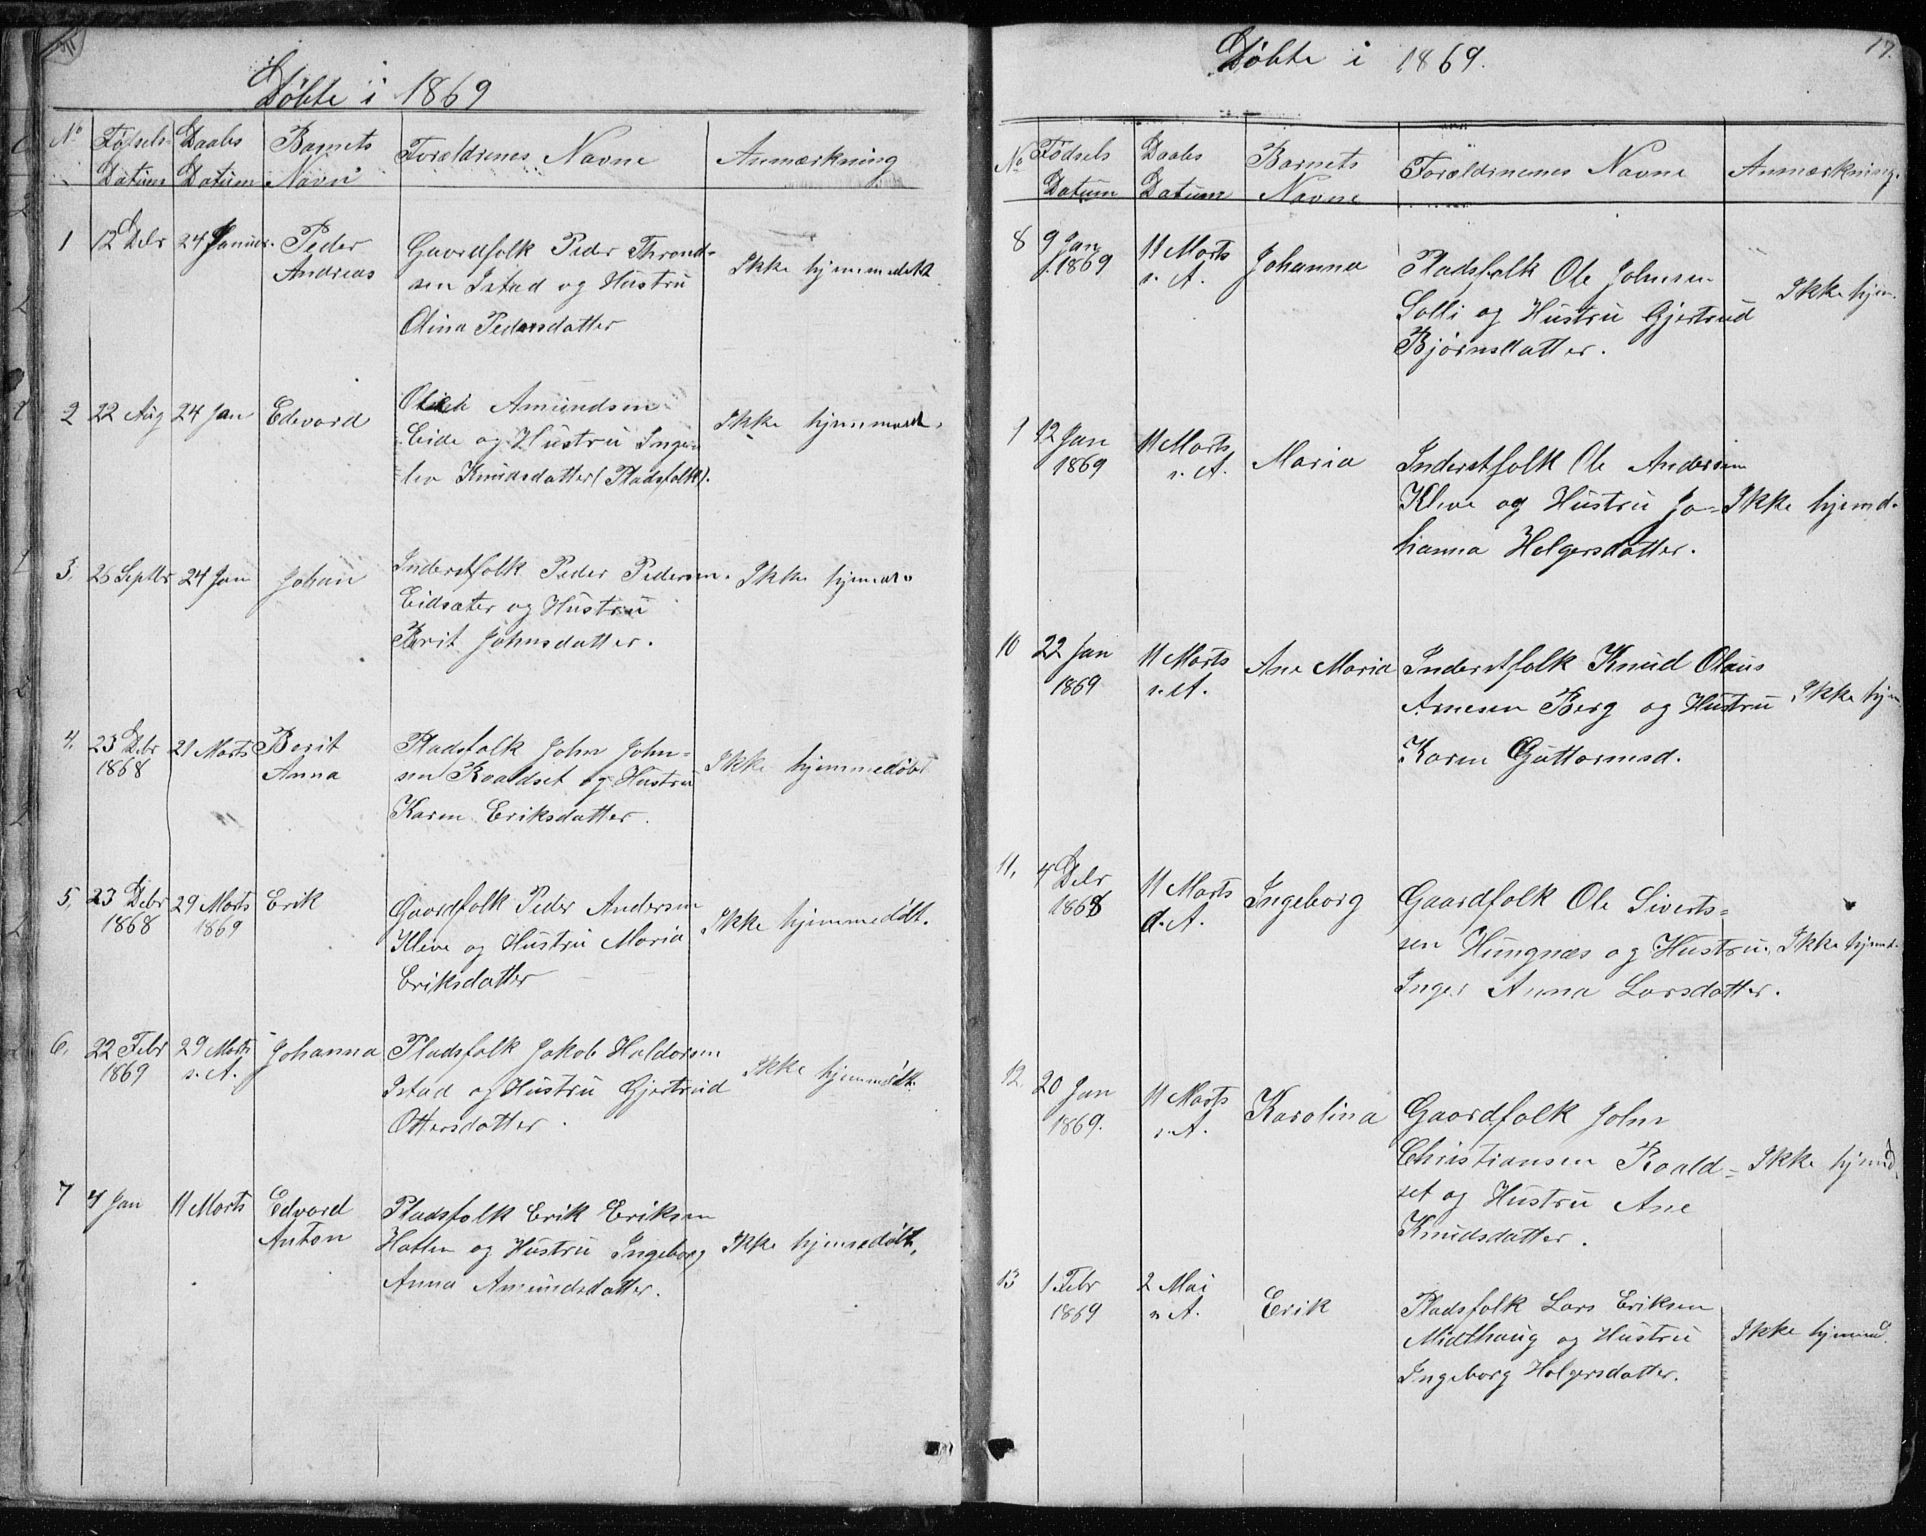 Døbte i 1869
No Fødsels Datum Daabs Datum Barnets Navn Forældrenes Navne Anmærkning
1 12 Debr 24 Januar. Peder Gaardfolk Peder Thrond-
Andreas sen Istad og Hustru Ikke hjemmedøbt
Olina Pedersdatter
2 22 Aug 24 Jan Edevard Amundsen Ikke hjemmedt.
Eide og Hustru Inge-
lev Knudsdatter (Pladsfolk).
3. 26 Septbr 24 Jan Johan Inderstfolk Peder Pedersen. Ikke hjemdt.
Eidsæter og Hustru
Berit Johnsdatter.
4. 23 Debr 21 Marts Berit Pladsfolk John John-
1868 Anna sen Roaldset og Hustru Ikke hjemmedøbt
Karen Eriksdatter.
5. 23 Debr 29 Marts Erik Gaardfolk Peder Andersen
1868 1869 Kleve og Hustru Maria Ikke hjemmedøbt.
Eriksdatter
6. 22 Febr 29 Marts Johanna Pladsfolk Jakob Haldorsen
1869 s. A. Istad og Hustru Gjertrud Ikke hjemmedøbt.
Ottersdatter.
7 4 Jan 11 Marts Edvard Pladsfolk Erik Eriksen
Anton Hatlen og Hustru Ingeborg Ikke hjemmedøbt.
Anna Amundsdatter.
17.
Døbte i 1869.
No Fødsels Datum Daabs Datum Barnets Navne Forældrenes Navne Anmærkning.
8 9 Jan 11 Marts Johanna Pladsfolk Ole Johnsen
1869 s. A. Solli og Hustru Gjertrud Ikke hjem.
Bjørnsdatter.
12 Jan 11 Marts Maria Inderstfolk Ole Andersen
1869 s. A. Kleve og Hustru Jo- Ikke hjemd.
hanna Helgersdatter.
10 22 Jan 11 Marts Ane Maria Inderstfolk Knud Olaus
1869 s. A. Arnesen Berg og Hustru Ikke hjem
Karen Guttormsd.
11. 4 Debr 11 Marts Ingeborg Gaardfolk Ole Siverts-
1868 d. A. sen Hungnæs og Hustru. Ikke hjemd.
Inger Anna Larsdatter.
12. 20 Jan 11 Marts Karolina Gaardfolk John
1869. s. A. Christiansen Roald- Ikke hjemd.
set og Hustru Ane
Knudsdatter.
13 1 Febr 2 Mai Erik Pladsfolk Lars Eriksen
1869 s. A. Midthaug og Hustru Ikke hjemmd.
Ingeborg Holgersdatter.